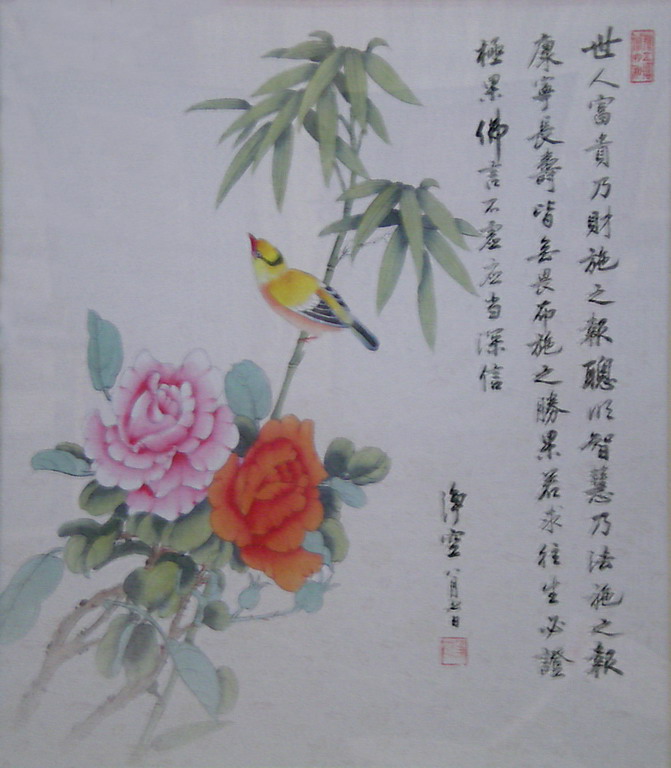 世人富貴乃財施之報聰明智慧乃法施之報
康寧長壽皆無畏布施之勝果若求往生必證
極果佛言不虛应当深信
淨空八月七日